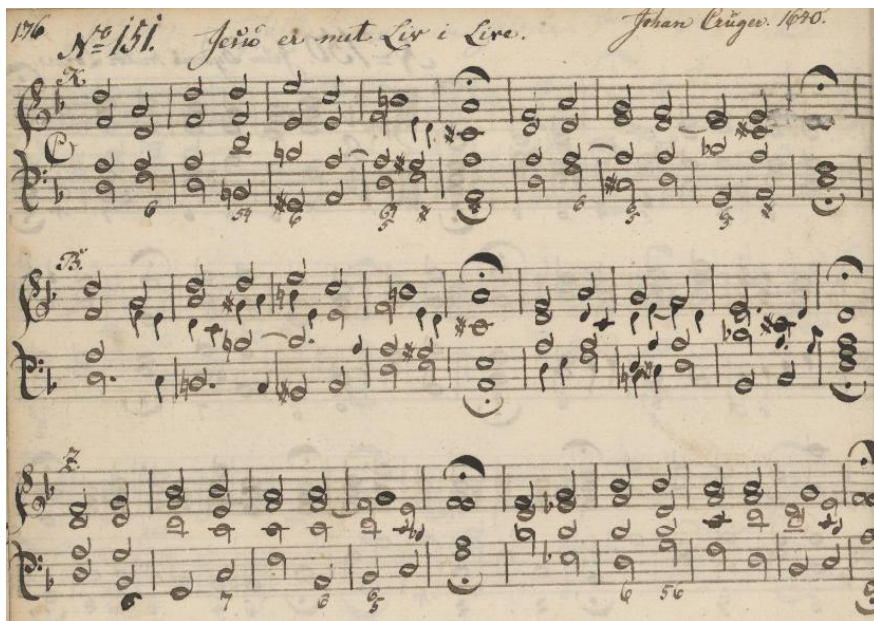 176 No 151. Jesu er mit Liv i Live. Johan Crüger. 1640.
6 54 6 6 5 6 6 5 6 5
7 6 6 5 6 56